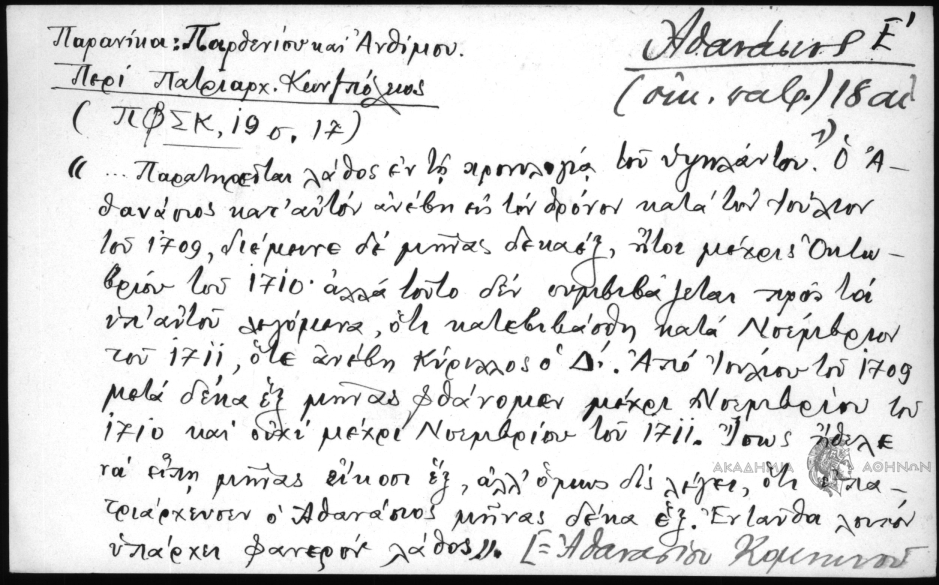 Παρανίκα: Παρθενίου και Ανθίμου.
Περί Πατριαρχ. Κων/πόλεως
(ΠΦΣΚ, 19 σ. 17)
Αθανάσιος Ε'
(οικ. πατρ.) 18 αι
«... Παρατηρείται λάθος εν τη χρονολογία του Υψηλάντου. 1) Ο Α-
θανάσιος κατ' αυτόν ανέβη εις τον θρόνον κατά τον Ιούλιον
του 1709, διέμεινε δε μήνας δεκαέξ, ήτοι μέχρις Οκτω-
βρίου του 1710· αλλά τούτο δεν συμβιβάζεται προς τα
υπ' αυτού λεγόμενα, ότι κατεβιβάσθη κατά Νοέμβριον
του 1711, ότε ανέβη Κύριλλος ο Δ'. Από Ιουλίου του 1709
μετά δέκα έξ μήνας φθάνομεν μέχρι Νοεμβρίου του
1710 και ουχί μέχρι Νοεμβρίου του 1711. Ίσως ήθελε
να είπη μήνας είκοσι έξ, αλλ' όμως δις λέγει, ότι επα-
τριάρχευσεν ο Αθανάσιος μήνας δέκα έξ. Ενταύθα λοιπόν
υπάρχει φανερόν λάθος». [= Αθανασίου Κομνηνού
ΑΚΑΔΗΜΙΑ ΑΘΗΝΩΝ